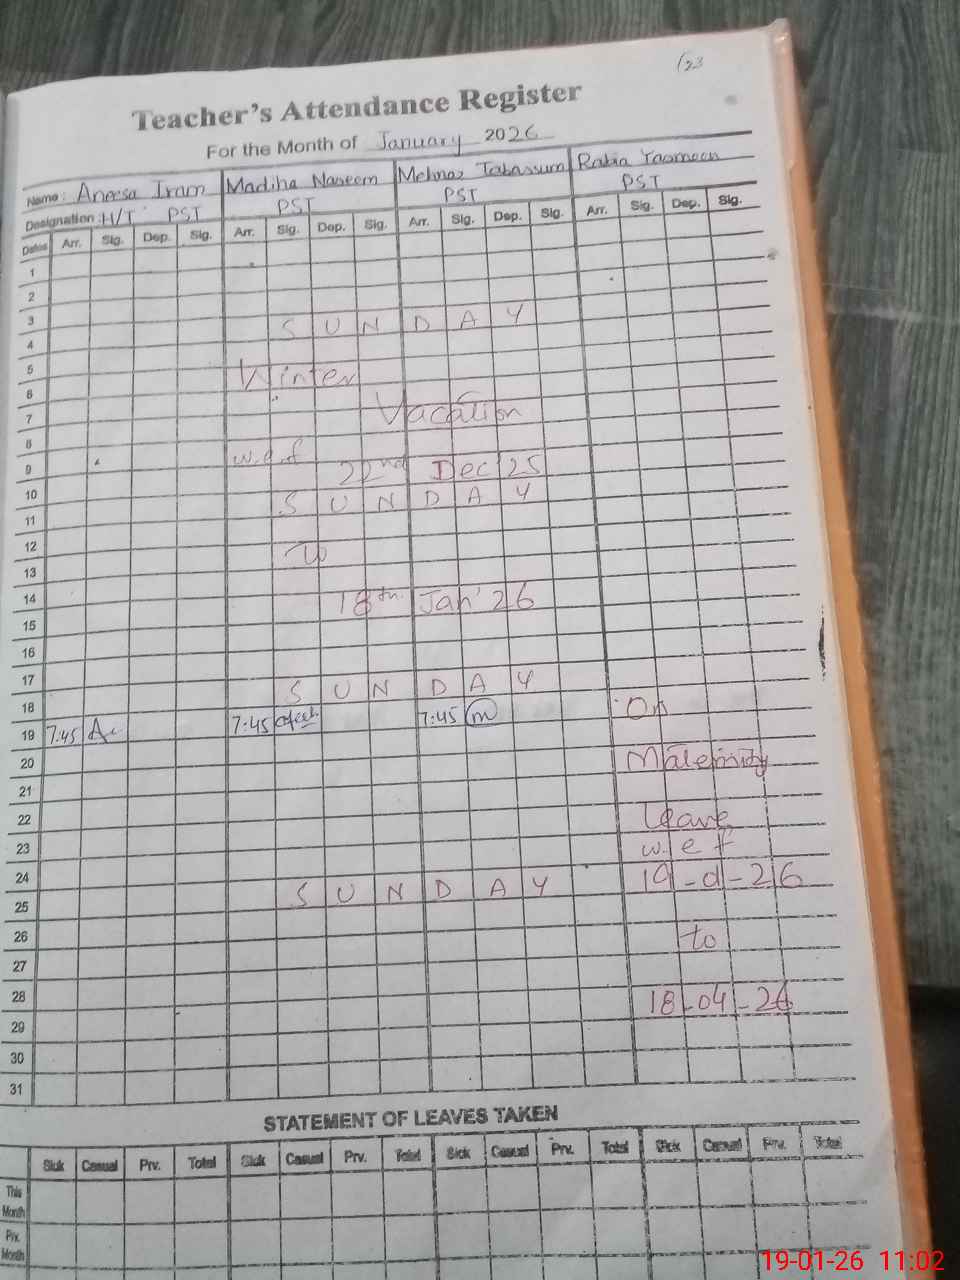 123
Teacher's Attendance Register
For the Month of January 2026
Name: Aneesa Iram Madiha Naseem Mehnaz Tabassum Rabia Yasmeen
Designation: H/T PST PST PST PST
Dates Arr. Sig. Dep. Sig. Arr. Sig. Dep. Sig. Arr. Sig. Dep. Sig. Arr. Sig. Dep. Sig.
1
2
3 SUNDAY
4
5 Winter
6
7 Vacation
8
9 w.e.f 22nd Dec 25
10 SUNDAY
11
12 To
13
14 18th Jan' 26
15
16
17 SUNDAY
18
19 7:45 7:45 7:45 m On
20 Maternity
21
22 Leave
23 w.e f
24 SUNDAY 19-01-26
25
26 to
27
28 18-04-26
29
30
31
STATEMENT OF LEAVES TAKEN
Sick Casual Prv. Total Sick Casual Prv. Total Sick Casual Prv. Total Sick Casual Prv. Total
This Month
Prv. Month
19-01-26 11:02